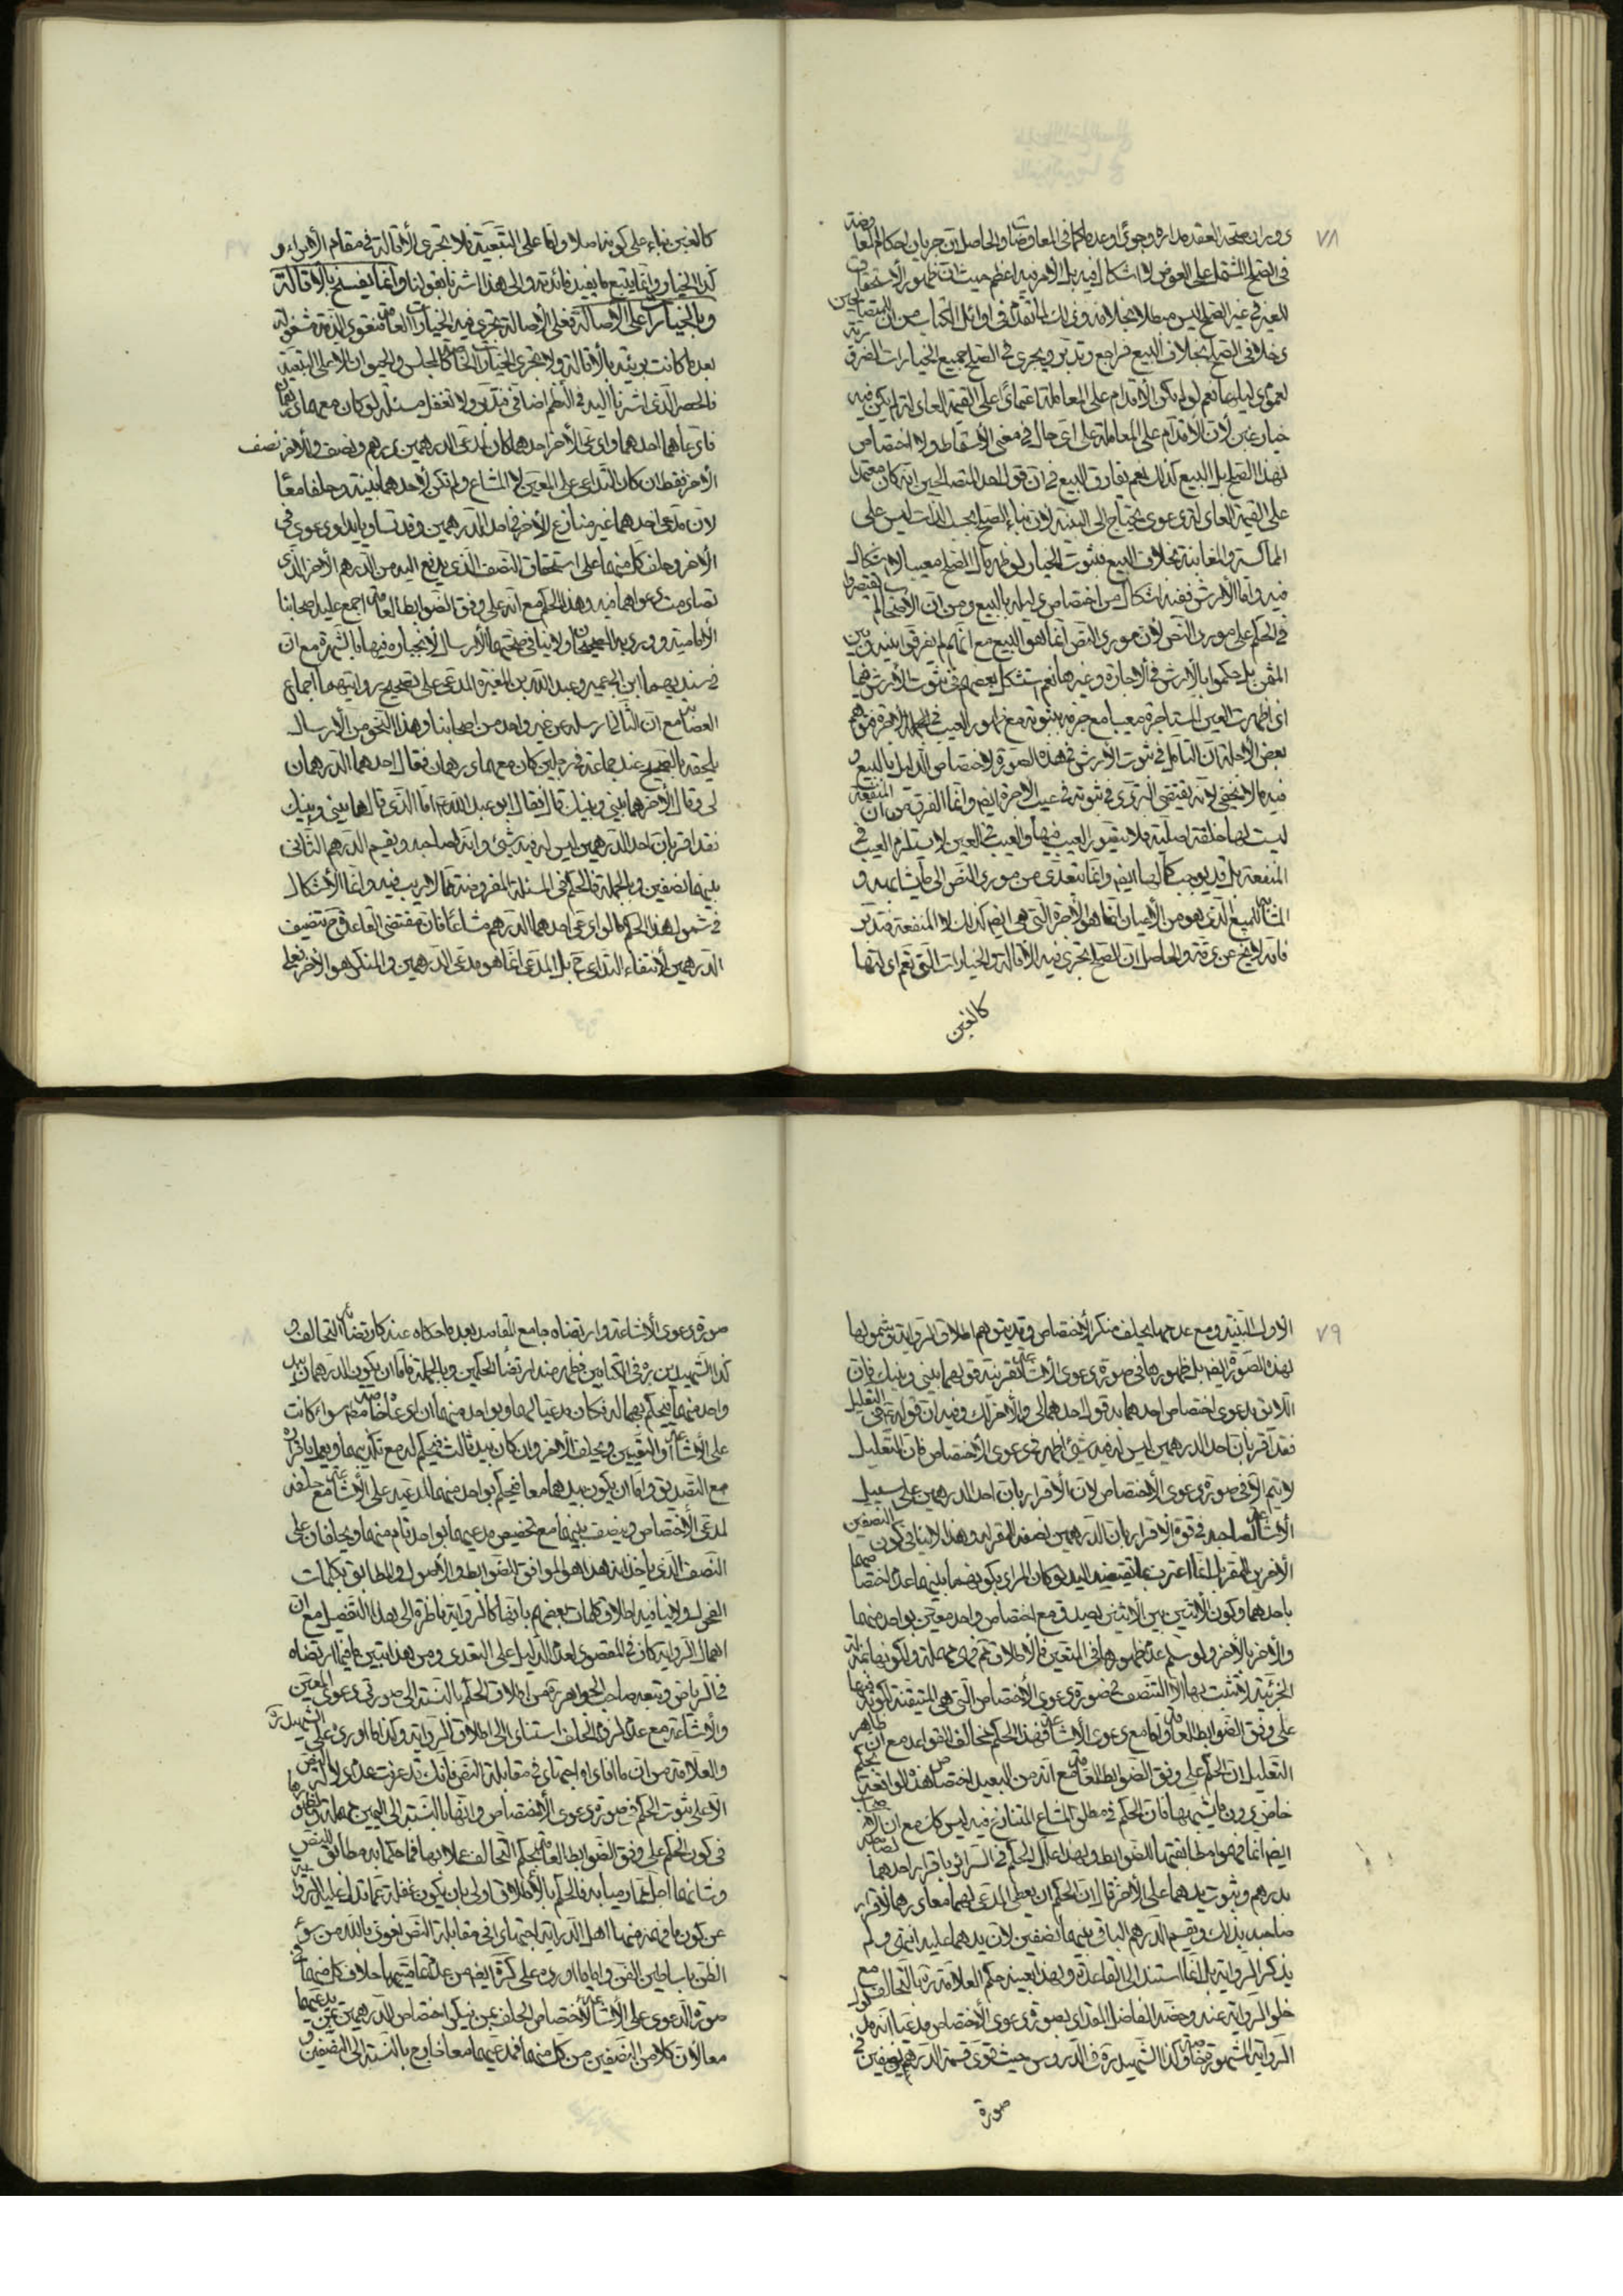 ٧٨
في الصلح المشتمل على العوض لا اشكال فيه بل الامر فيه اعظم حيث ان ظهور الاستحقاق
للغير في غير الصلح ليس مبطلا بخلافه
دخلا في الصلح بخلاف البيع فراجع وتدبر ويجري في الصلح جميع الخيارات
لعموم دليلها نعم لو لم يكن الاقدام على المعاملة اعتمادا على القيمة العادلة لم يكن فيه
خيار غبن لان الاقدام على المعاملة على اي حال في معنى الاسقاط ولا اختصاص
لهذا الصلح بل البيع كذلك نعم يفارق البيع في ان قول احد المتصالحين انه كان معتمدا
على القيمة العادلة دعوى يحتاج الى البينة لان بناء الصلح بحسب الذات ليس على
المماكسة والمغابنة بخلاف البيع فثبوت الخيار لو ظهر مال الصلح معيبا لا اشكال
فيه واما الارش ففيه اشكال من اختصاص دليله بالبيع ومن ان الاصحاب لم يقتصروا
في الحكم على مورد النص لان مورد النص انما هو البيع مع انهم لم يفرقوا بينه وبين
الثمن بل حكموا بالارش في الاجارة وغيرها نعم استشكل بعضهم في ثبوت الارش فيما
اذا ظهرت العين المستاجرة معيبا مع جزمه بثبوته مع ظهور العيب في
بعض الاجلة ان التامل في ثبوت الارش في هذه الصورة لاختصاص الدليل بالبيع و
فيه ما لا يخفى لانه يقتضي التروي في ثبوته في عيب الاجرة ايضا وانما الفرق هو ان المنفعة
ليست لها خلقة اصلية فلا يتصور العيب فيها والعيب في العين لا يستلزم العيب في
المنفعة بل قد يوجب كمالها ايضا وانما نتعدى من مورد النص الى ما يشابهه و
المشابه للمبيع الذي هو من الاعيان انما هو الاجرة التي هي ايضا كذلك لا المنفعة فتدبر
فانه لا يخلو عن دقة والحاصل ان الصلح تجري فيه الاقالة والخيارات التي تعم ادلتها
كالغبن
كالغبن بناء على كونه اصلا واما على التبعية فلا تجري الاقالة في مقام الابراء و
كذا الخيار وانما يتبع ما يفيد فائدته والى هذا اشرنا بقولنا وانما يفسخ بالاقالة
وبالخيارات على الاصالة فعلى الاصالة تجري فيه الخيارات العامة فتعود الذمة مشغولة
بعد ما كانت بريئة بالاقالة ولا تجري الخيارات الخاصة كالمجلس والحيوان الا على التبعية
فالحصر الذي اشرنا اليه في النظم اضافي فتدبر ولا تغفل مسئلة لو كان معهما درهمان
فادعاهما احدهما وادعى الاخر احدهما كان لمدعي الدرهمين درهم ونصف وللاخر نصف
الاخر فقط ان كان التداعي على المعين لا المشاع ولم تكن لاحدهما بينة وحلفا معا
لان مدعي احدهما غير منازع للاخر في احد الدرهمين وقد تساويا يدا ودعوى في
الاخر وحلف كل منهما على استحقاق النصف الذي يدفع اليه من الدرهم الاخر الذي
تصادمت دعواهما فيه وهذا الحكم مع انه على وفق الضوابط العامة اجمع عليه اصحابنا
الامامية وورد به الصحيحان ولا ينافي صحتهما الارسال لانجباره فيهما بالشهرة مع ان
في سنديهما ابن ابي عمير وعبد الله بن المغيرة المدعى على تصحيح روايتهما اجماع
العصابة مع ان الثاني ارسله عن غير واحد من اصحابنا وهذا النحو من الارسال
يلحقه بالصحيح عند جماعة في رجلين كان معهما درهمان فقال احدهما الدرهمان
لي وقال الاخر هما بيني وبينك قال فقال ابو عبد الله ع اما الذي قال هما بيني وبينك
فقد اقر بان احد الدرهمين ليس له فيه شيئ وانه لصاحبه ويقسم الدرهم الثاني
بينهما نصفين وبالجملة فالحكم في المسئلة المفروضة مما لا ريب فيه وانما الاشكال
في شمول هذا الحكم لما لو ادعى احدهما الدرهم مشاعا فان مقتضى القاعدة ح تنصيف
الدرهمين لانتفاء التداعي ح بل المدعي انما هو مدعي الدرهمين والمنكر هو الاخر فعلى
٧٩
الاول البينة ومع عدمها يحلف منكر الاختصاص وقد يتوهم اطلاق الرواية وشمولها
لهذه الصورة ايضا بل ظهورها في صورة دعوى الاشاعة بقرينة قوله هما بيني وبينك فان
اللائق بدعوى اختصاص احدهما به قول احدهما لي والاخر لك وفيه ان قوله ع في التعليل
فقد اقر بان احد الدرهمين ليس له فيه شيئ اظهر في دعوى الاختصاص فان التعليل
لا يتم الا في صورة دعوى الاختصاص لان الاقرار بان احد الدرهمين على سبيل
الاشاعة لصاحبه في قوة الاقرار بان الدرهمين نصفه للمقر له وهذا لا ينافي كون النصفين
الاخرين للمقر
باحدهما وكون الاثنين بين الاثنين يصدق مع اختصاص واحد معين بواحد منهما
والاخر بالاخر ولو سلم عدم ظهورها في المتعين فالاطلاق
الجزئية لا تثبت بها الا التنصف في صورة دعوى الاختصاص التي هي المتيقنة لكونه فيها
على وفق الضوابط العامة واما مع دعوى الاشاعة فهذا الحكم مخالف للقواعد مع ان ظاهر
التعليل ان الحكم على وفق الضوابط العامة مع انه من البعيد اختصاص هذه الواقعة بحكم
خاص دون ما يشبهها فان الحكم في مطلق المشاع المتنازع فيه ليس كك مع ان
ايضا انما فهموا مطابقتها للضوابط ولهذا علل الحكم في السرائر باقرار احدهما لصاحبه
بدرهم وثبوت يدهما على الاخر قال ان الحكم ان يعطى المدعي لهما معا درهما لاقرار
صاحبه بذلك ويقسم الدرهم الباقي بينهما نصفين لان يدهما عليه انتهى ولم
يذكر الرواية بل انما استند الى القاعدة ولهذا بعينه حكم العلامة ره بالتحالف مع
خلو الرواية عنه وخصه الفاضل المقداد بصورة دعوى الاختصاص مدعيا انه مدلول
الرواية المشهورة وكذا الشهيد ره في الدروس حيث قوى قسمة الدرهم نصفين في
صورة
صورة دعوى الاشاعة وارتضاه جامع المقاصد بعد ما حكاه عنه كارتضائه التحالف و
كذا الشهيد بن بره في الكتابين فظهر منه ارتضاء الحكمين وبالجملة فاما ان يكون الدرهمان بيد
واحد منهما فيحكم بهما له فكان مدعيا لهما وبواحد منهما ان ادعاه خاصة سواء كانت
على الاشاعة او التعيين ويحلف الاخر وان كان بيد ثالث فيحكم له مع تكذيبهما وبهما باقراره
مع التصديق واما ان يكون بيدهما معا فيحكم بواحد منهما لمدعيه على الاشاعة مع حلفه
لمدعي الاختصاص وينصف بينهما مع تخصيص مدعيهما بواحد تام منهما ويحلفان على
النصف الذي ياخذانه هذا هو الموافق للضوابط والاصول والمطابق لكلمات
الفحول ولا ينافيه اطلاق كلمات بعضهم بانها كالرواية ناظرة الى هذا التفصيل مع ان
اهمال الرواية كاف في المقصود لعدم الدليل على التعدي ومن هذا تبين ما فيما ارتضاه
في الرياض وتبعه صاحب الجواهر ره من اطلاق الحكم بالنسبة الى صورتي دعوى المعين
والاشاعة مع عدم لزوم الحلف استنادا الى اطلاق الرواية وكذا ما اورده على الشهيد ره
والعلامة من ان ما افاداه اجتهاد في مقابلة النص فانك قد عرفت عدم دلالة النص
الا على ثبوت الحكم في صورة دعوى الاختصاص وانها بالنسبة الى اليمين مهملة
في كون الحكم على وفق الضوابط العامة بحكم التحالف عملا بها فما حكما به مطابق للنص
وشانهما اجل مما رمياه به فالحكم بالاطلاق اولى بان يكون غفلة عما تدل عليه الرواية
عن كون ما فهمه منها اهل الدراية اجتهادا في مقابلة النص نعوذ بالله من سوء
الظن باساطين الفن واما ما اورده على كثرة ايضا من عدم تمامية احلاف كل منهما في
صورة الدعوى على الاشاعة لاختصاص الحلف بمن ينكر اختصاص الدرهمين بمن يدعيهما
معا لان كلا من النصفين من كل منهما فمدعيهما معا خارج بالنسبة الى النصفين